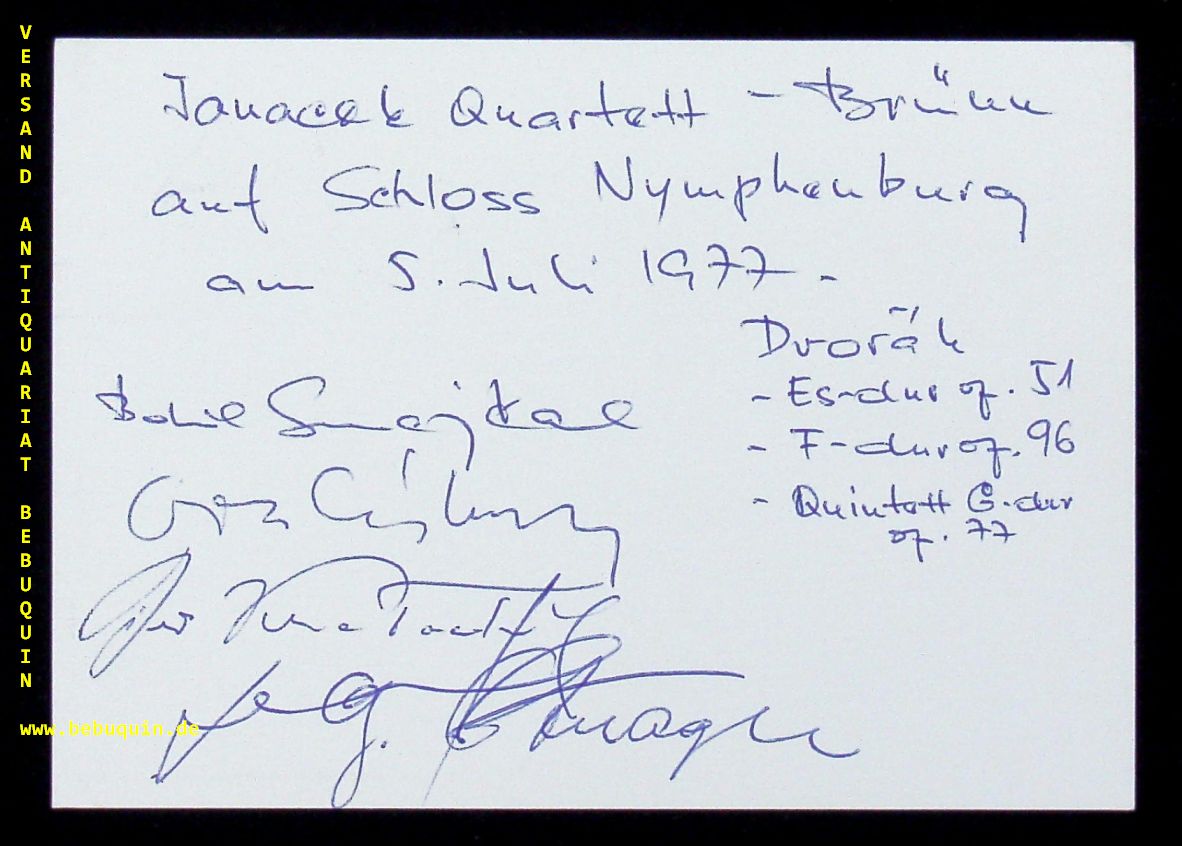 VERSAND ANTIQUARIAT BEBUQUIN
www.bebuquin.de
Janacek Quartett - Brünn
auf Schloss Nymphenburg
am 5. Juli 1977 -
Dvořák
- Es-dur op. 51
- F-dur op. 96
- Quintett G-dur
op. 77
Bohumil Smejkal
Jiří Kratochvíl